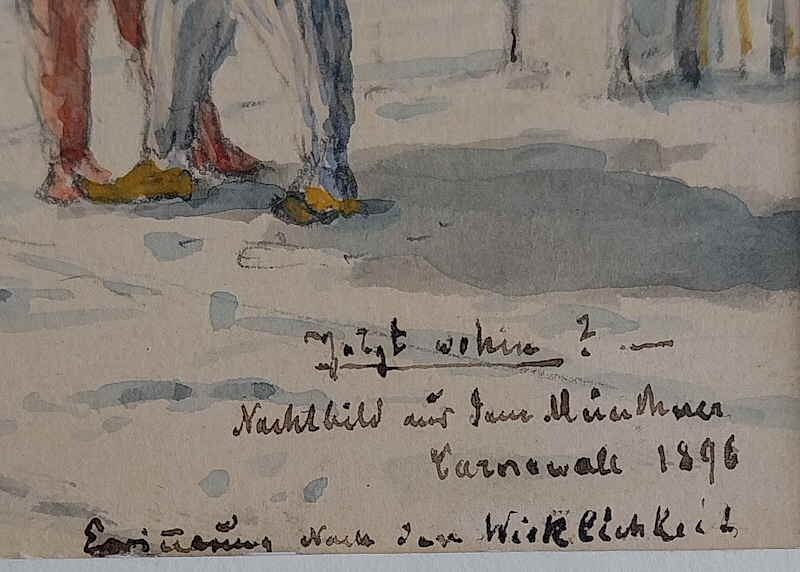 Jetzt wohin? —
Nachtbild aus dem Münchner
Carnewall 1896
Erinnerung Nach der Wirklichkeit